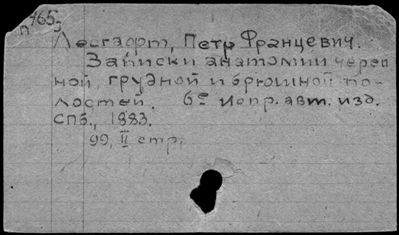 П 465
3
Лесгафт, Петр Францевич.
Записки анатомии череп
ной, грудной и брюшной по-
лостей. 6е испр. авт. изд.
СПб., 1883.
99, II стр.